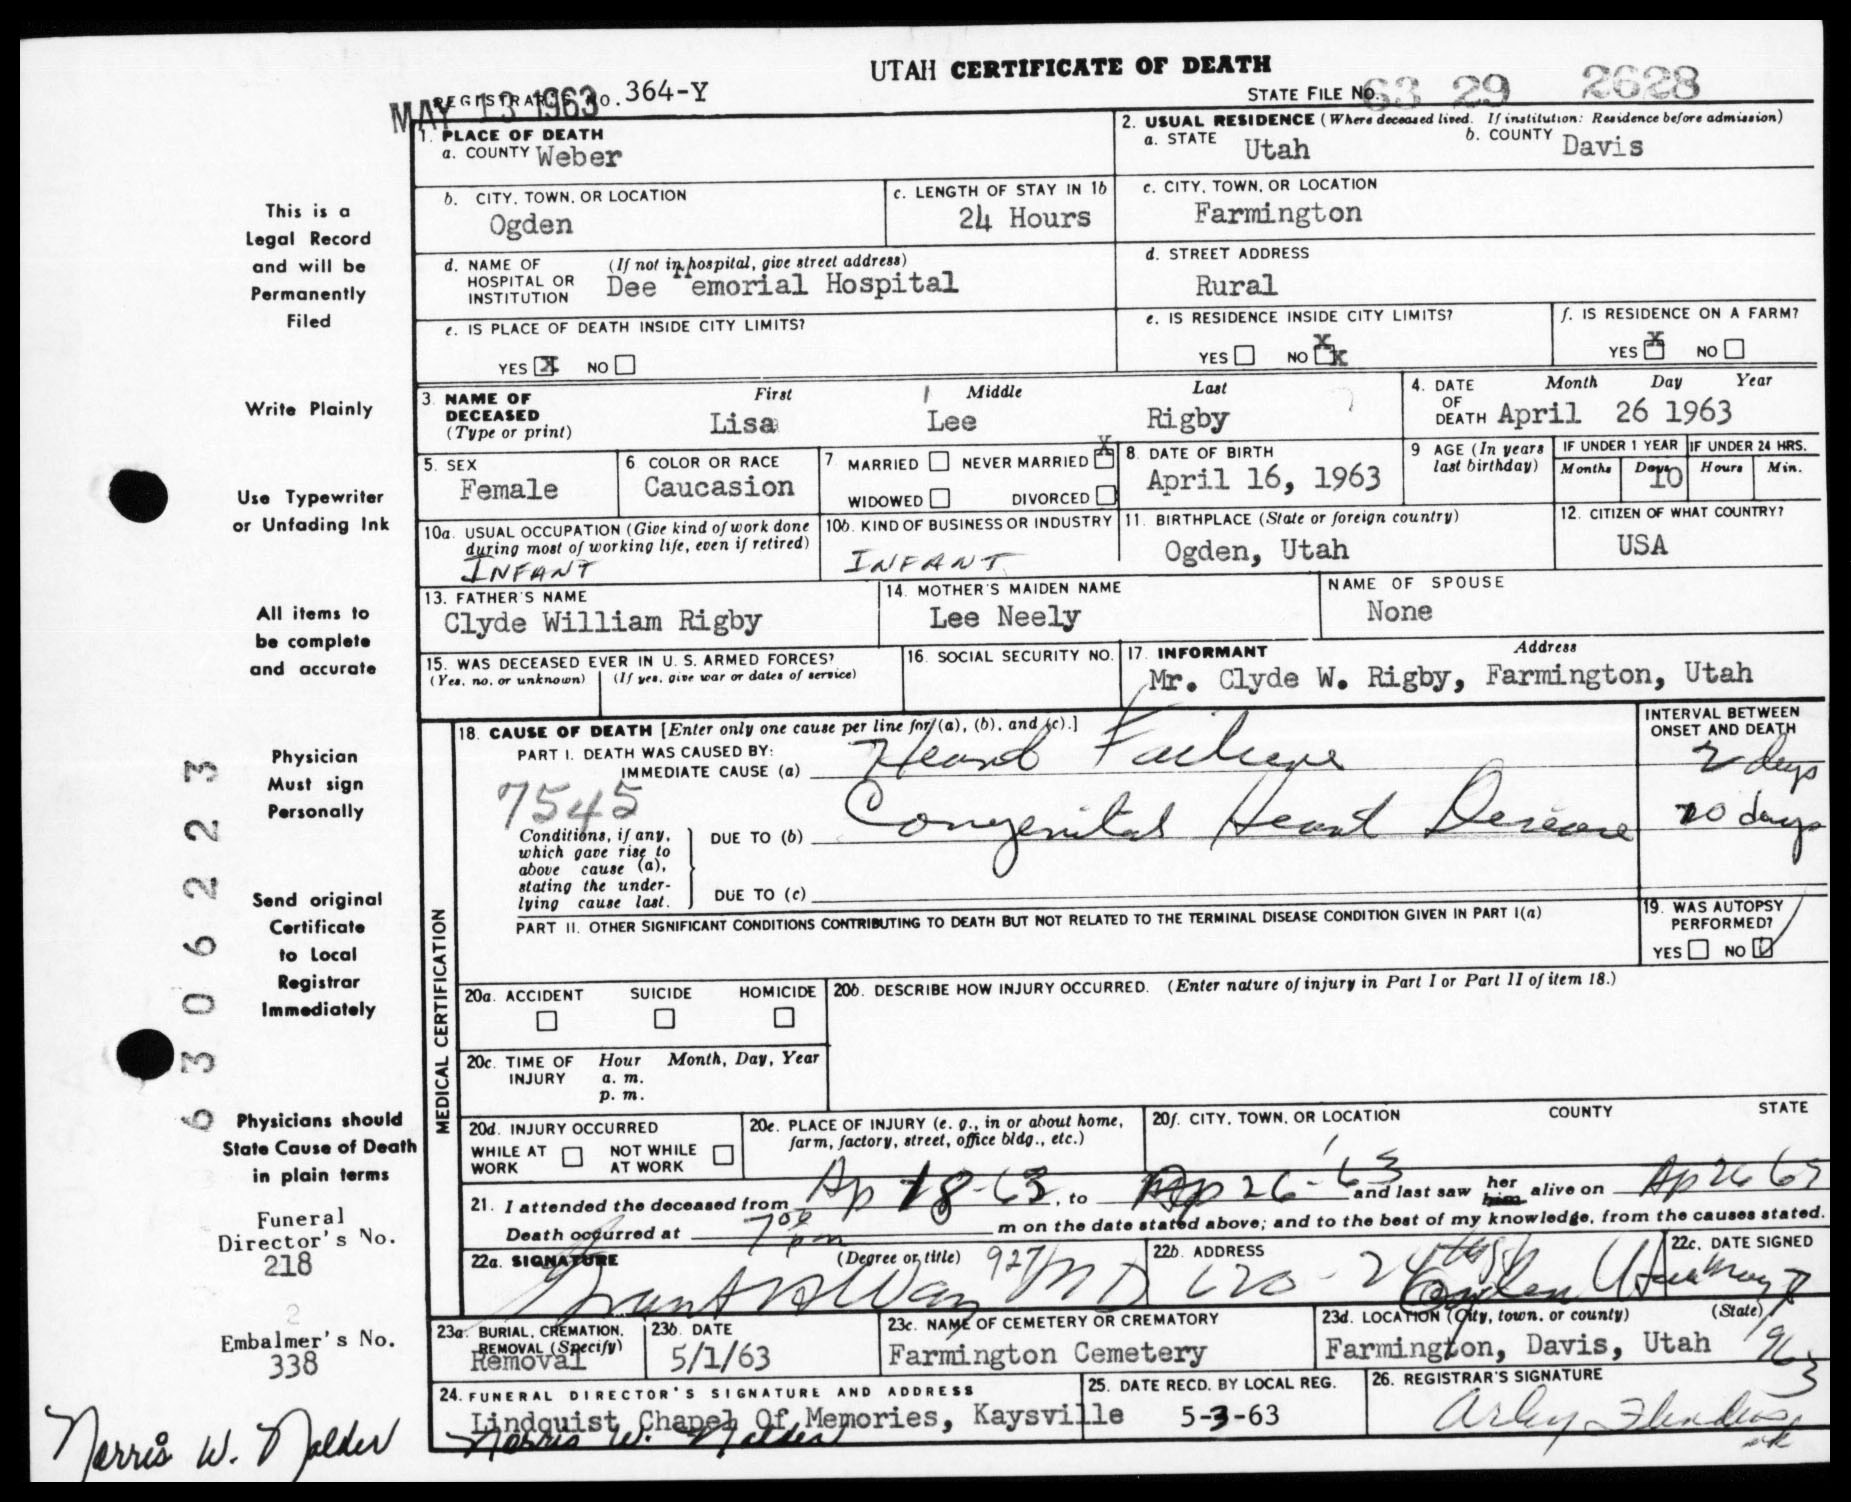 UTAH CERTIFICATE OF DEATH
MAY 13 1963
REGISTRAR'S NO. 364-Y
STATE FILE NO. 63 29 2628
1. PLACE OF DEATH
a. COUNTY Weber
2. USUAL RESIDENCE (Where deceased lived. If institution: Residence before admission)
a. STATE Utah b. COUNTY Davis
b. CITY, TOWN, OR LOCATION
Ogden
c. LENGTH OF STAY IN 1b
24 Hours
c. CITY, TOWN, OR LOCATION
Farmington
d. NAME OF HOSPITAL OR INSTITUTION (If not in hospital, give street address)
Dee Memorial Hospital
d. STREET ADDRESS
Rural
e. IS PLACE OF DEATH INSIDE CITY LIMITS?
YES X NO
e. IS RESIDENCE INSIDE CITY LIMITS?
YES NO X x
f. IS RESIDENCE ON A FARM?
YES X NO
3. NAME OF DECEASED (Type or print)
First Middle Last
Lisa Lee Rigby
4. DATE OF DEATH Month Day Year
April 26 1963
5. SEX
Female
6 COLOR OR RACE
Caucasion
7 MARRIED NEVER MARRIED X
WIDOWED DIVORCED
8. DATE OF BIRTH
April 16, 1963
9 AGE (In years last birthday)
IF UNDER 1 YEAR IF UNDER 24 HRS.
Months Days Hours Min.
10
10a. USUAL OCCUPATION (Give kind of work done during most of working life, even if retired)
INFANT
10b. KIND OF BUSINESS OR INDUSTRY
INFANT
11. BIRTHPLACE (State or foreign country)
Ogden, Utah
12. CITIZEN OF WHAT COUNTRY?
USA
13. FATHER'S NAME
Clyde William Rigby
14. MOTHER'S MAIDEN NAME
Lee Neely
NAME OF SPOUSE
None
15. WAS DECEASED EVER IN U. S. ARMED FORCES?
(Yes, no, or unknown) (If yes, give war or dates of service)
16. SOCIAL SECURITY NO.
17. INFORMANT Address
Mr. Clyde W. Rigby, Farmington, Utah
18. CAUSE OF DEATH [Enter only one cause per line for (a), (b), and (c).]
PART I. DEATH WAS CAUSED BY:
IMMEDIATE CAUSE (a) Heart Failure
INTERVAL BETWEEN ONSET AND DEATH
2 days
7545
Conditions, if any, which gave rise to above cause (a), stating the underlying cause last.
DUE TO (b) Congenital Heart Disease
10 days
DUE TO (c)
PART II. OTHER SIGNIFICANT CONDITIONS CONTRIBUTING TO DEATH BUT NOT RELATED TO THE TERMINAL DISEASE CONDITION GIVEN IN PART I(a)
19. WAS AUTOPSY PERFORMED?
YES NO
MEDICAL CERTIFICATION
20a. ACCIDENT SUICIDE HOMICIDE
20b. DESCRIBE HOW INJURY OCCURRED. (Enter nature of injury in Part I or Part II of item 18.)
20c. TIME OF INJURY Hour Month, Day, Year
a. m.
p. m.
20d. INJURY OCCURRED
WHILE AT WORK NOT WHILE AT WORK
20e. PLACE OF INJURY (e. g., in or about home, farm, factory, street, office bldg., etc.)
20f. CITY, TOWN, OR LOCATION COUNTY STATE
21. I attended the deceased from Ap 18-63, to Ap 26-'63 and last saw her him alive on Ap 26 63
Death occurred at 7 00 pm m on the date stated above; and to the best of my knowledge, from the causes stated.
22a. SIGNATURE (Degree or title)
927 MD
22b. ADDRESS
Ogden Utah
22c. DATE SIGNED
May 1963
23a. BURIAL, CREMATION, REMOVAL (Specify)
Removal
23b. DATE
5/1/63
23c. NAME OF CEMETERY OR CREMATORY
Farmington Cemetery
23d. LOCATION (City, town, or county) (State)
Farmington, Davis, Utah
24. FUNERAL DIRECTOR'S SIGNATURE AND ADDRESS
Lindquist Chapel Of Memories, Kaysville
Norris W. Nalder
25. DATE RECD. BY LOCAL REG.
5-3-63
26. REGISTRAR'S SIGNATURE
This is a
Legal Record
and will be
Permanently
Filed
Write Plainly
Use Typewriter
or Unfading Ink
All items to
be complete
and accurate
Physician
Must sign
Personally
Send original
Certificate
to Local
Registrar
Immediately
Physicians should
State Cause of Death
in plain terms
6306223
Funeral
Director's No.
218
Embalmer's No.
338
Norris W. Nalder